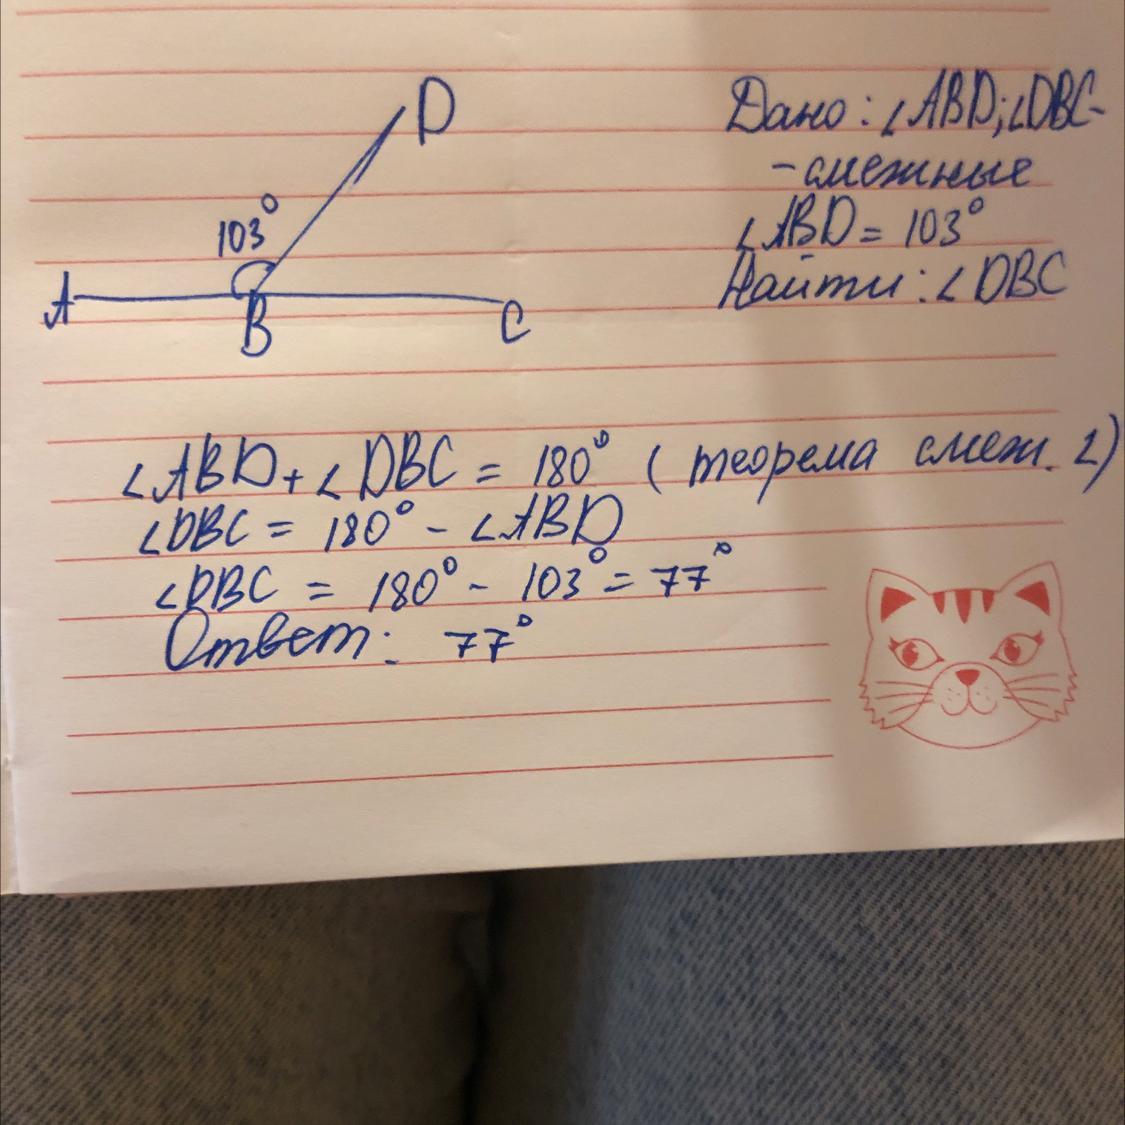 D
103°
A
B
C
Дано: ∠ABD; ∠DBC-
-смежные
∠ABD = 103°
Найти: ∠DBC
∠ABD + ∠DBC = 180° (теорема смеж. ∠)
∠DBC = 180° - ∠ABD
∠DBC = 180° - 103° = 77°
Ответ: 77°